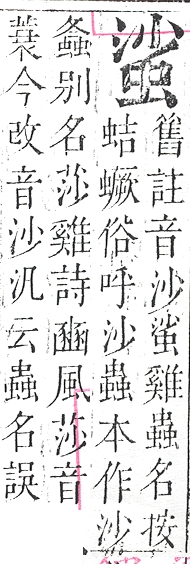 𧋊
舊註音沙𧋊雞蟲名按
蛣蟩俗呼沙蟲本作沙
螽别名莎雞詩豳風莎音
蓑今改音沙汎云蟲名誤